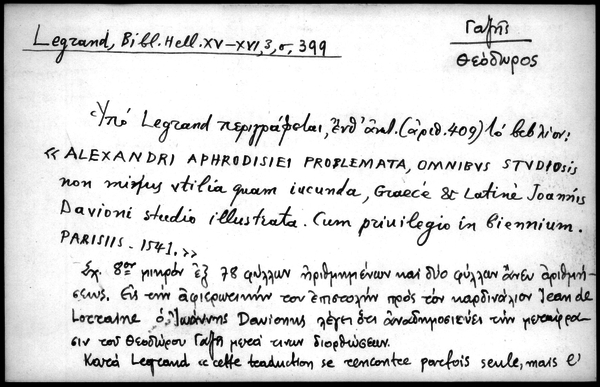 Legrand, Bibl. Hell. XV–XVI, 3, σ, 399
Γαζῆς
Θεόδωρος
Ὑπὸ Legrand περιγράφεται, ἔνθ' ἀνωτ. (ἀριθ. 409) τὸ βιβλίον:
« ALEXANDRI APHRODISIEI PROBLEMATA, OMNIBVS STVDIOSIS
non minus vtilia quam iucunda, Graecè & Latinè Joannis
Davioni studio illustrata. Cum priuilegio in biennium.
PARISIIS - 1541. »
Σχ. 8ον μικρὸν ἐξ 78 φύλλων ἠριθμημένων καὶ δύο φύλλων ἄνευ ἀριθμή-
σεως. Εἰς τὴν ἀφιερωτικήν του ἐπιστολὴν πρὸς τὸν καρδινάλιον Jean de
Lorraine ὁ Ἰωάννης Davionus λέγει ὅτι ἀναδημοσιεύει τὴν μετάφρα-
σιν τοῦ Θεοδώρου Γαζῆ μετά τινων διορθώσεων.
Κατὰ Legrand « cette traduction se rencontre parfois seule, mais l'